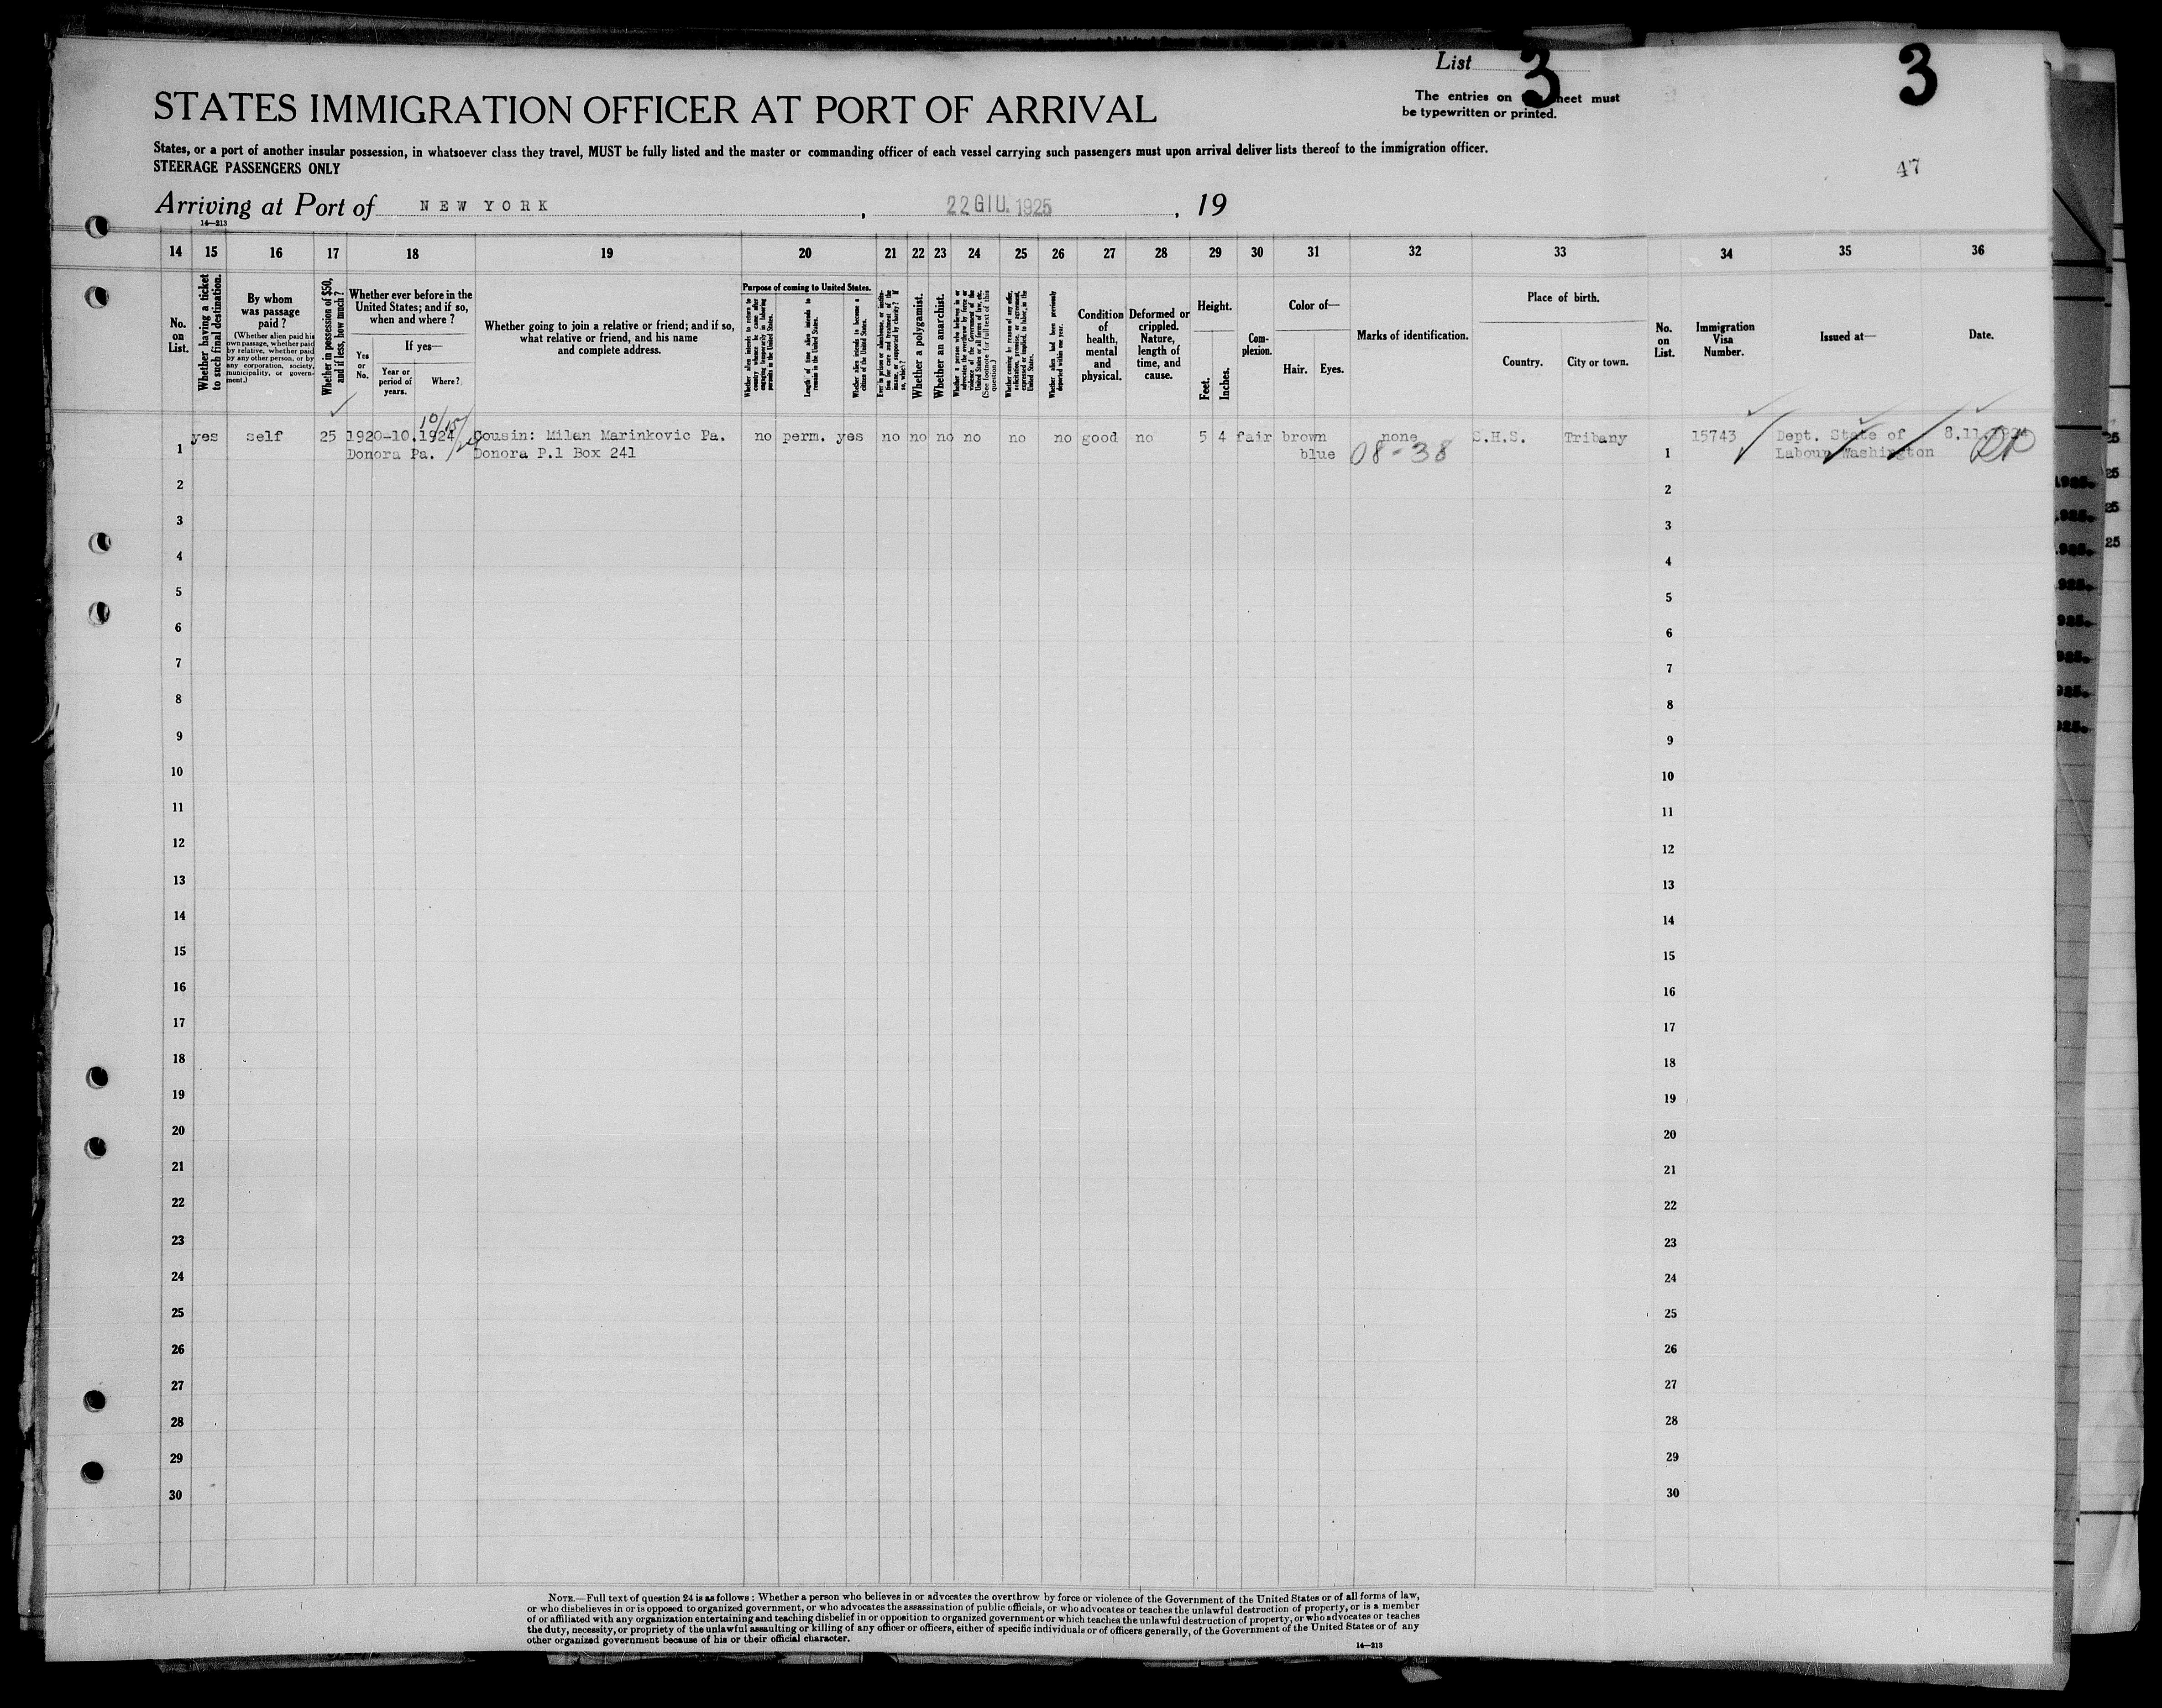 List 3
3
The entries on sheet must
be typewritten or printed.
STATES IMMIGRATION OFFICER AT PORT OF ARRIVAL
States, or a port of another insular possession, in whatsoever class they travel, MUST be fully listed and the master or commanding officer of each vessel carrying such passengers must upon arrival deliver lists thereof to the immigration officer.
STEERAGE PASSENGERS ONLY
47
Arriving at Port of NEW YORK, 22 GIU. 1925, 19
14—213
14 15 16 17 18 19 20 21 22 23 24 25 26 27 28 29 30 31 32 33 34 35 36
No. on List.
Whether having a ticket to such final destination.
By whom was passage paid?
(Whether alien paid his own passage, whether paid by relative, whether paid by any other person, or by any corporation, society, municipality, or government.)
Whether in possession of $50, and if less, how much?
Whether ever before in the United States; and if so, when and where?
Yes or No.
If yes—
Year or period of years.
Where?
Whether going to join a relative or friend; and if so, what relative or friend, and his name and complete address.
Purpose of coming to United States.
Whether alien intends to return to country whence he came after engaging temporarily in laboring pursuits in the United States.
Length of time alien intends to remain in the United States.
Whether alien intends to become a citizen of the United States.
Ever in prison or almshouse, or institution for care and treatment of the insane, or supported by charity? If so, which?
Whether a polygamist.
Whether an anarchist.
Whether a person who believes in or advocates the overthrow by force or violence of the Government of the United States or all forms of law, etc. (See footnote for full text of this question.)
Whether coming by reason of any offer, solicitation, promise, or agreement, expressed or implied, to labor in the United States.
Whether alien had been previously deported within one year.
Condition of health, mental and physical.
Deformed or crippled. Nature, length of time, and cause.
Height.
Feet. Inches.
Complexion.
Color of—
Hair. Eyes.
Marks of identification.
Place of birth.
Country. City or town.
No. on List.
Immigration Visa Number.
Issued at—
Date.
10/15/24
1 yes self 25 1920-10.1924 Cousin: Milan Marinkovic Pa. no perm. yes no no no no no no good no 5 4 fair brown none S.H.S. Tribany 1 15743 Dept. State of 8.11.1924
Donora Pa. Donora P.l Box 241 blue 08-38 Labour Washington
2 2
3 3
4 4
5 5
6 6
7 7
8 8
9 9
10 10
11 11
12 12
13 13
14 14
15 15
16 16
17 17
18 18
19 19
20 20
21 21
22 22
23 23
24 24
25 25
26 26
27 27
28 28
29 29
30 30
NOTE.—Full text of question 24 is as follows: Whether a person who believes in or advocates the overthrow by force or violence of the Government of the United States or of all forms of law,
or who disbelieves in or is opposed to organized government, or who advocates the assassination of public officials, or who advocates or teaches the unlawful destruction of property, or is a member
of or affiliated with any organization entertaining and teaching disbelief in or opposition to organized government or which teaches the unlawful destruction of property, or who advocates or teaches
the duty, necessity, or propriety of the unlawful assaulting or killing of any officer or officers, either of specific individuals or of officers generally, of the Government of the United States or of any
other organized government because of his or their official character.
14—213